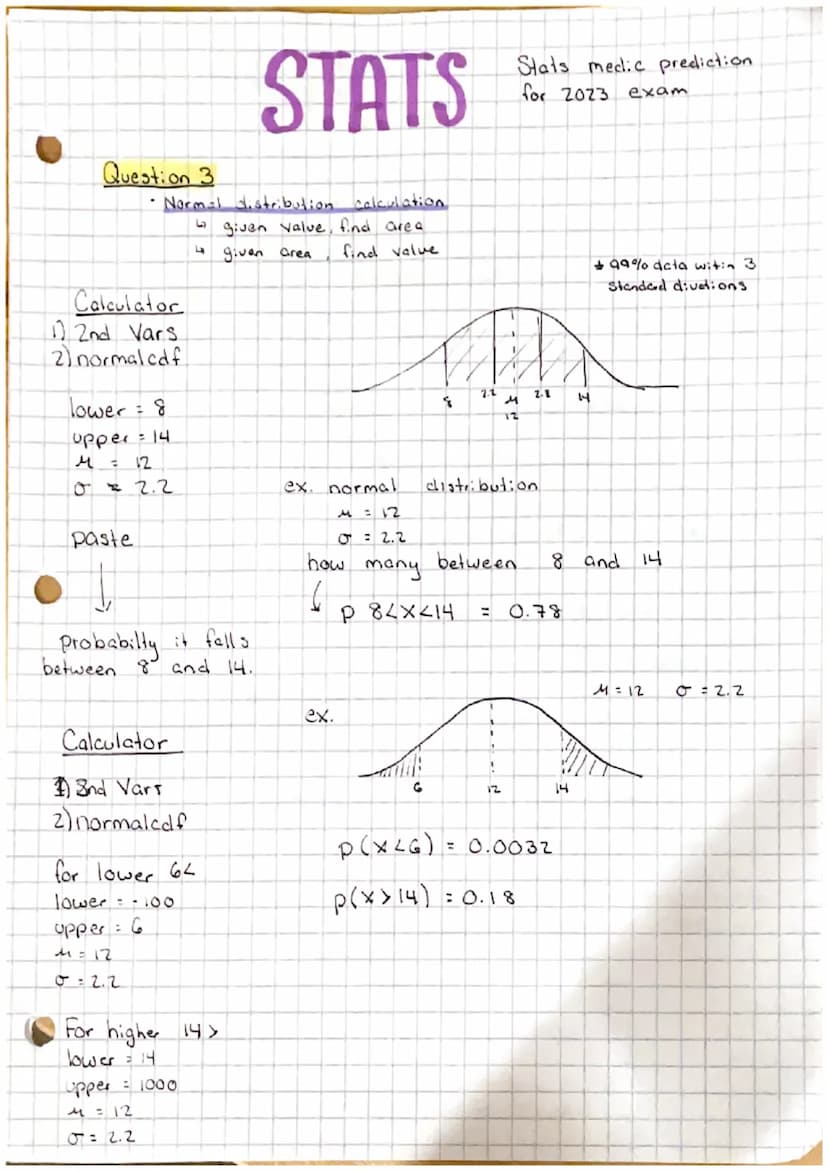 STATS
Stats medic prediction
for 2023 exam
Question 3
• Normal distribution calculation
↳ given value, find area
↳ given area, find value
* 99% data witin 3
Standard divations
Calculator
1) 2nd Vars
2) normalcdf
lower = 8
upper = 14
μ = 12
σ = 2.2
8 2.2 μ 2.8 14
12
ex. normal distribution
μ = 12
σ = 2.2
how many between 8 and 14
↓ p 8<X<14 = 0.78
paste
↓
probabilty it falls
between 8 and 14.
μ = 12 σ = 2.2
ex.
6 12 14
Calculator
1) 2nd Vars
2) normalcdf
p(x<6) = 0.0032
p(x>14) = 0.18
for lower 6<
lower = -100
upper = 6
μ = 12
σ = 2.2
For higher 14>
lower = 14
upper = 1000
μ = 12
σ = 2.2